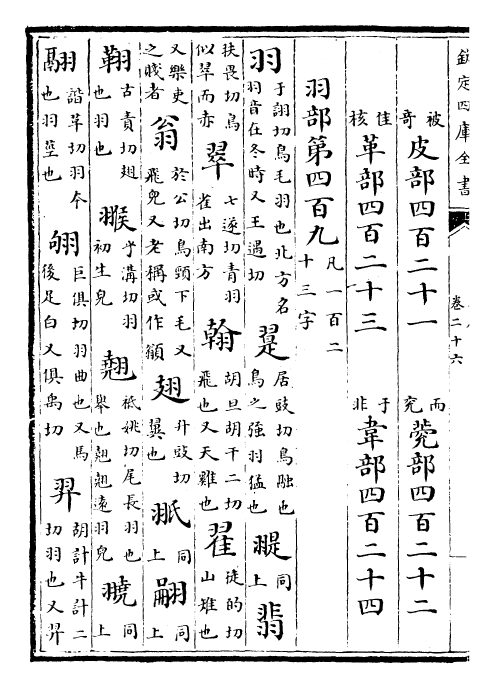 欽定四庫全書 卷二十六
被奇 皮部四百二十一 而究 部四百二十二
佳核 革部四百二十三 于非 韋部四百二十四
羽部第四百九 凡一百二十三字
羽 于詡切鳥毛羽也北方名羽音在冬時又王遇切 翨 居豉切鳥融也鳥之強羽猛也 同上 翡
扶畏切鳥似翠而赤 翠 七遂切青羽雀出南方 翰 胡旦胡干二切飛也又天雞也 翟 徒的切山雉也
又樂吏之賤者 翁 於公切鳥頸下毛又飛皃又老稱或作 翅 升豉切翼也 同上 同上
古責切翅也羽也 翭 乎溝切羽初生皃 翹 祗姚切尾長羽也舉也翹翹遠羽皃 同上
翮 諧革切羽本也羽莖也 翑 巨俱切羽曲也又馬後足白又俱禹切 羿 胡計牛計二切羽也又羿